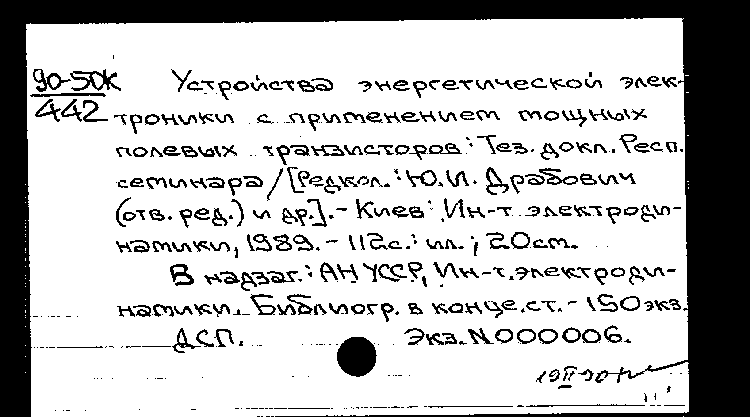 90-50К Устройства энергетической элек-
442 троники с применением мощных
полевых транзисторов : Тез. докл. Респ.
семинара / [Редкол. : Ю. И. Драбович
(отв. ред.) и др.]. - Киев : Ин-т электроди-
намики, 1989. - 112с. : ил. ; 20см.
В надзаг. : АН УССР, Ин-т. электроди-
намики. Библиогр. в конце. ст. - 150 экз.
ДСП. Экз. N000006.
19 II 90